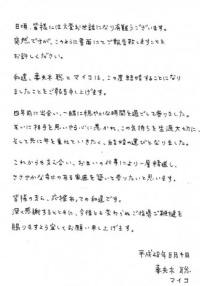 日頃、皆様には大変お世話になり有難うございます。
突然ですが、このように書面にてご報告致しますことを
お許しください。
私達、妻夫木聡とマイコは、この度結婚することになり
ましたことをご報告申し上げます。
四年前に出会い、一緒に穏やかな時間を過ごして参りました。
互いに相手を思いやる心に惹かれ、この気持ちを生涯大切に、
そして共に年を重ねていきたく、結婚の運びとなりました。
これからも支え合い、お互いの仕事により一層精進し、
ささやかな幸せのある家庭を築いて参りたいと思います。
皆様の支え、応援あっての私達です。
深く感謝するとともに、今後とも変わらぬご指導ご鞭撻を
賜りますよう宜しくお願い申し上げます。
平成28年8月4日
妻夫木 聡
マイコ